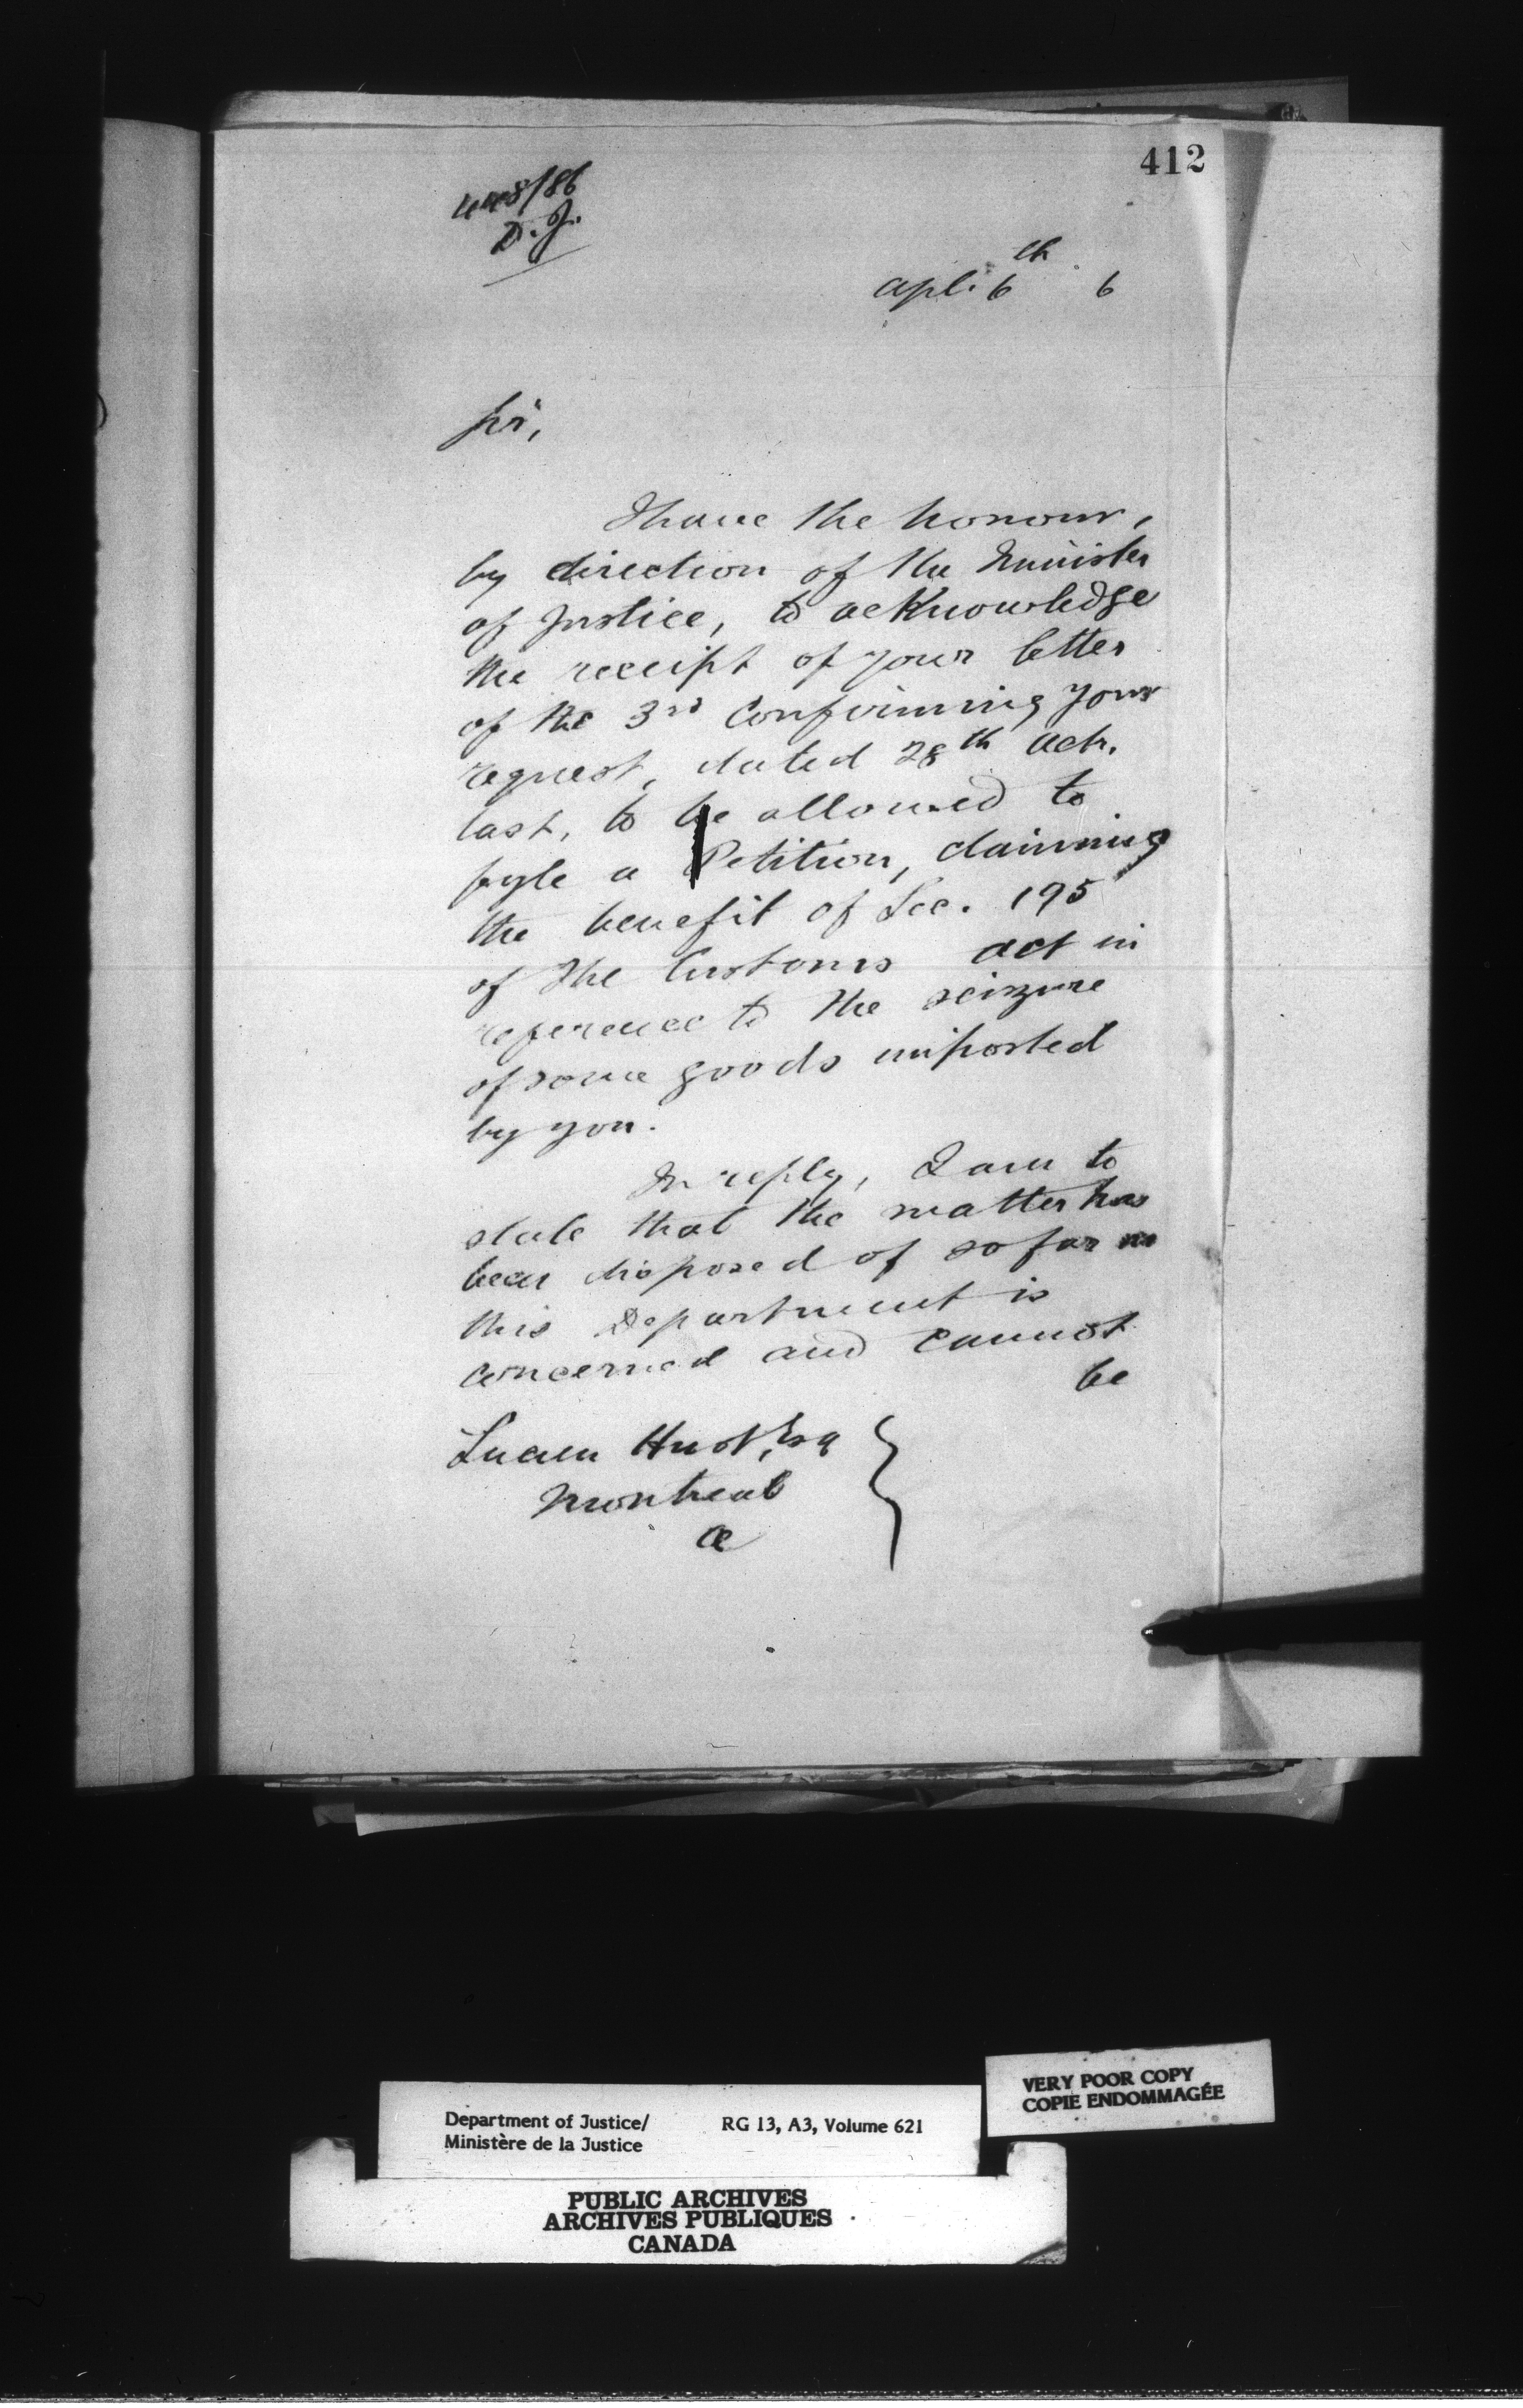 412
448/86
D.J.
apl. 6th 6
Sir,
I have the honour,
by direction of the Minister
of Justice, to acknowledge
the receipt of your letter
of the 3rd confirming your
request, dated 28th Octr.
last, to be allowed to
fyle a Petition, claiming
the benefit of Sec. 195
of the Customs act in
reference to the seizure
of some goods imported
by you.
In reply, I am to
state that the matter has
been disposed of so far as
this Department is
concerned and cannot
be
Lucien Huot, Esq
Montreal
VERY POOR COPY
COPIE ENDOMMAGÉE
Department of Justice/ RG 13, A3, Volume 621
Ministère de la Justice
PUBLIC ARCHIVES
ARCHIVES PUBLIQUES
CANADA